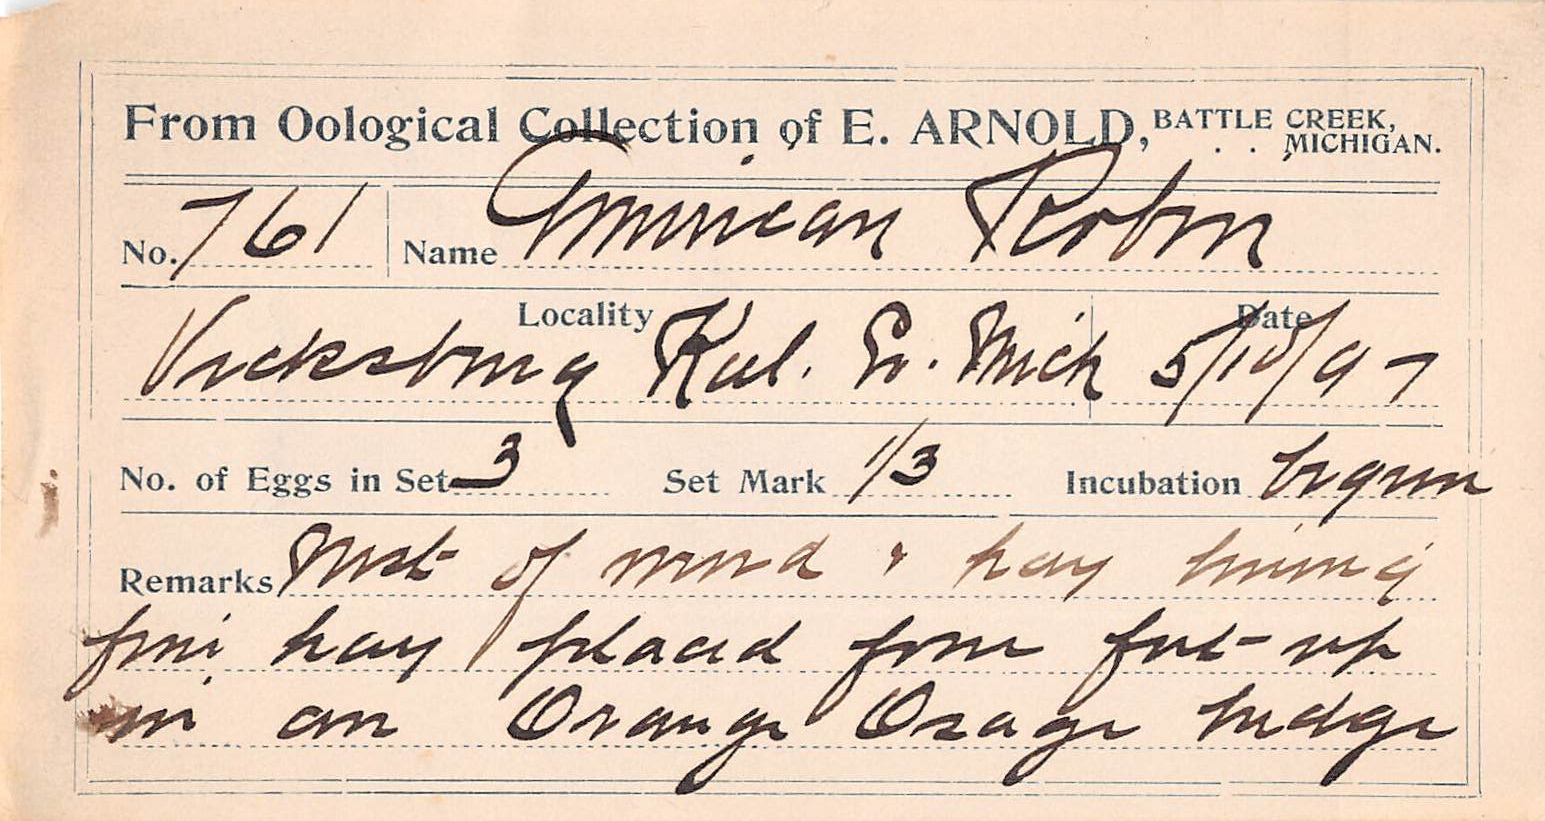 From Oological Collection of E. ARNOLD, BATTLE CREEK, MICHIGAN.
No. 761 Name American Robin
Locality Date
Vicksburg Kal. Co. Mich 5/10/97
No. of Eggs in Set 3 Set Mark 1/3 Incubation begun
Remarks Nest of mud & hay lining
fine hay placed four feet up
in an Orange Osage hedge